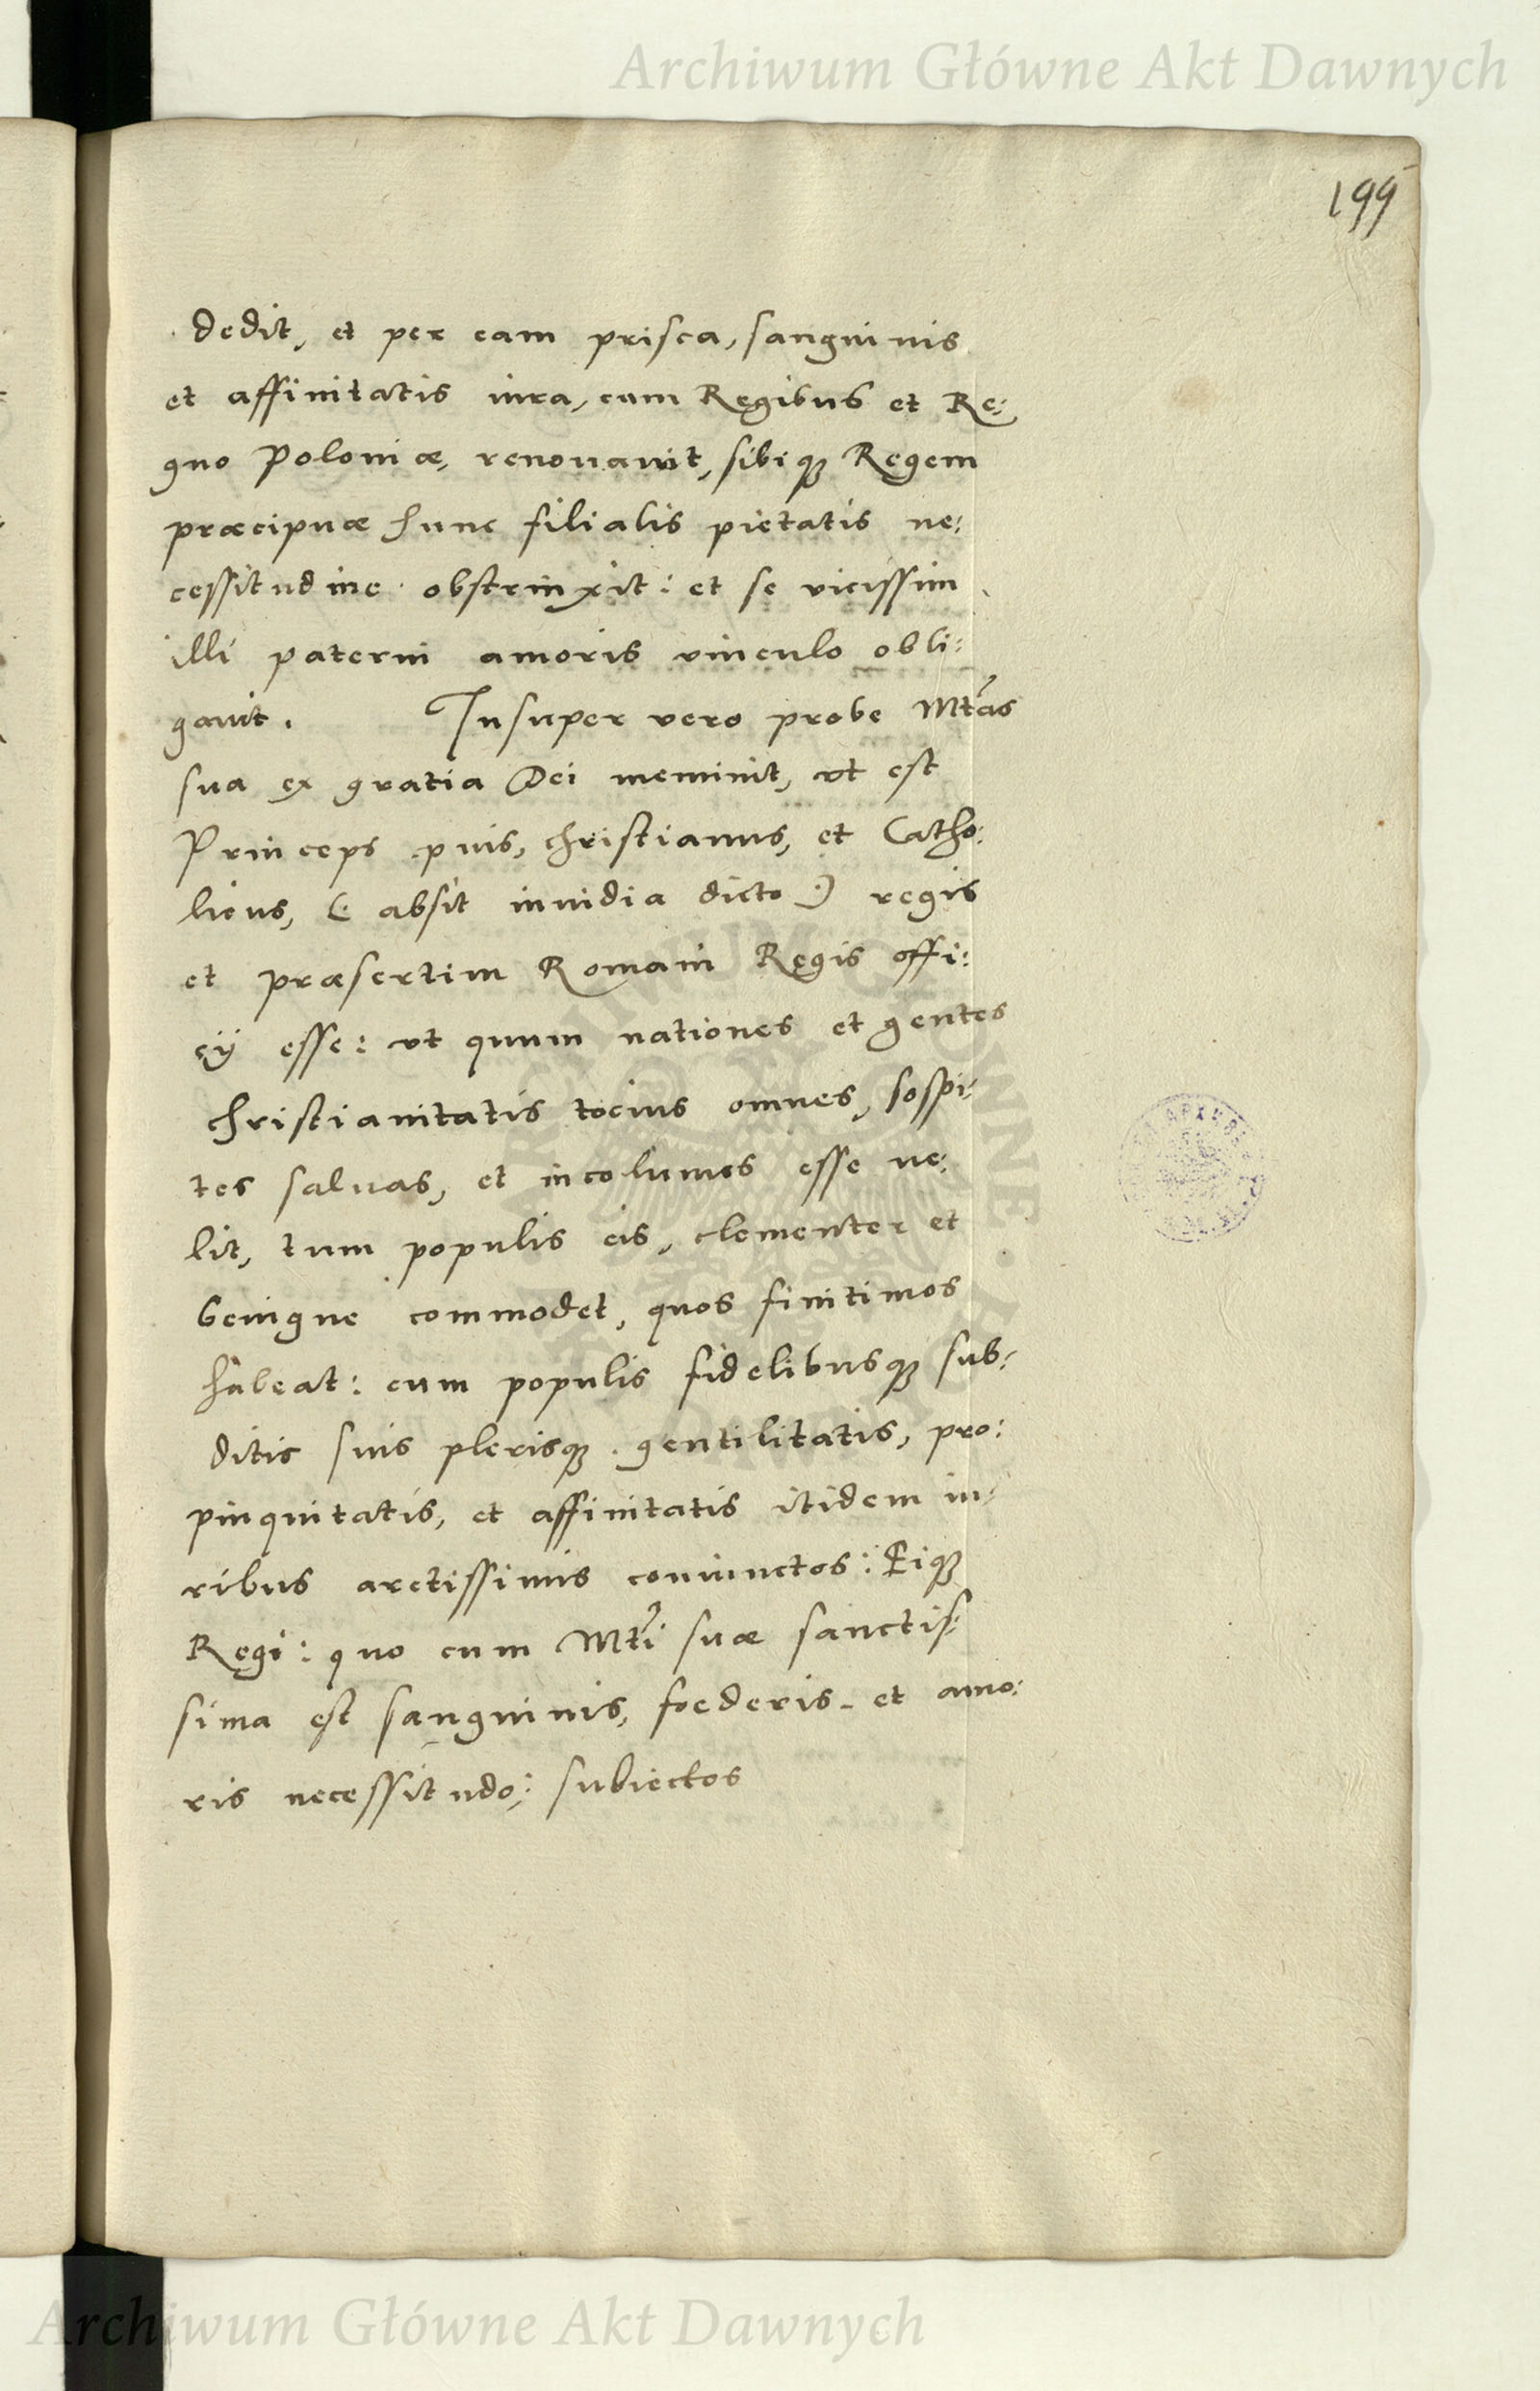 Archiwum Główne Akt Dawnych
199
dedit, et per eam prisca, sanguinis
et affinitatis iura, cum Regibus et Re:
gno Poloniæ, renouauit, sibiq; Regem
præcipuæ hunc filialis pietatis ne:
cessitudine obstrinxit: et se vicissim
illi paterni amoris vinculo obli:
gauit. Insuper vero probe Mtas
sua ex gratia Dei meminit, vt est
Princeps pius, christianus, et Catho:
licus, (: absit inuidia dicto :) regis
et præsertim Romani Regis offi:
cij esse: vt quum nationes et gentes
christianitatis tocius omnes, sospi:
tes saluas, et incolumes esse ue:
lit, tum populis eis, clementer et
benigne commodet, quos finitimos
habeat: cum populis fidelibusq; sub:
ditis suis plerisq; gentilitatis, pro:
pinquitatis, et affinitatis itidem iu:
ribus arctissimis coniunctos: Eiq;
Regi: quo cum Mti suæ sanctis:
sima est sanguinis, foederis et amo:
ris necessitudo: subiectos
Archiwum Główne Akt Dawnych